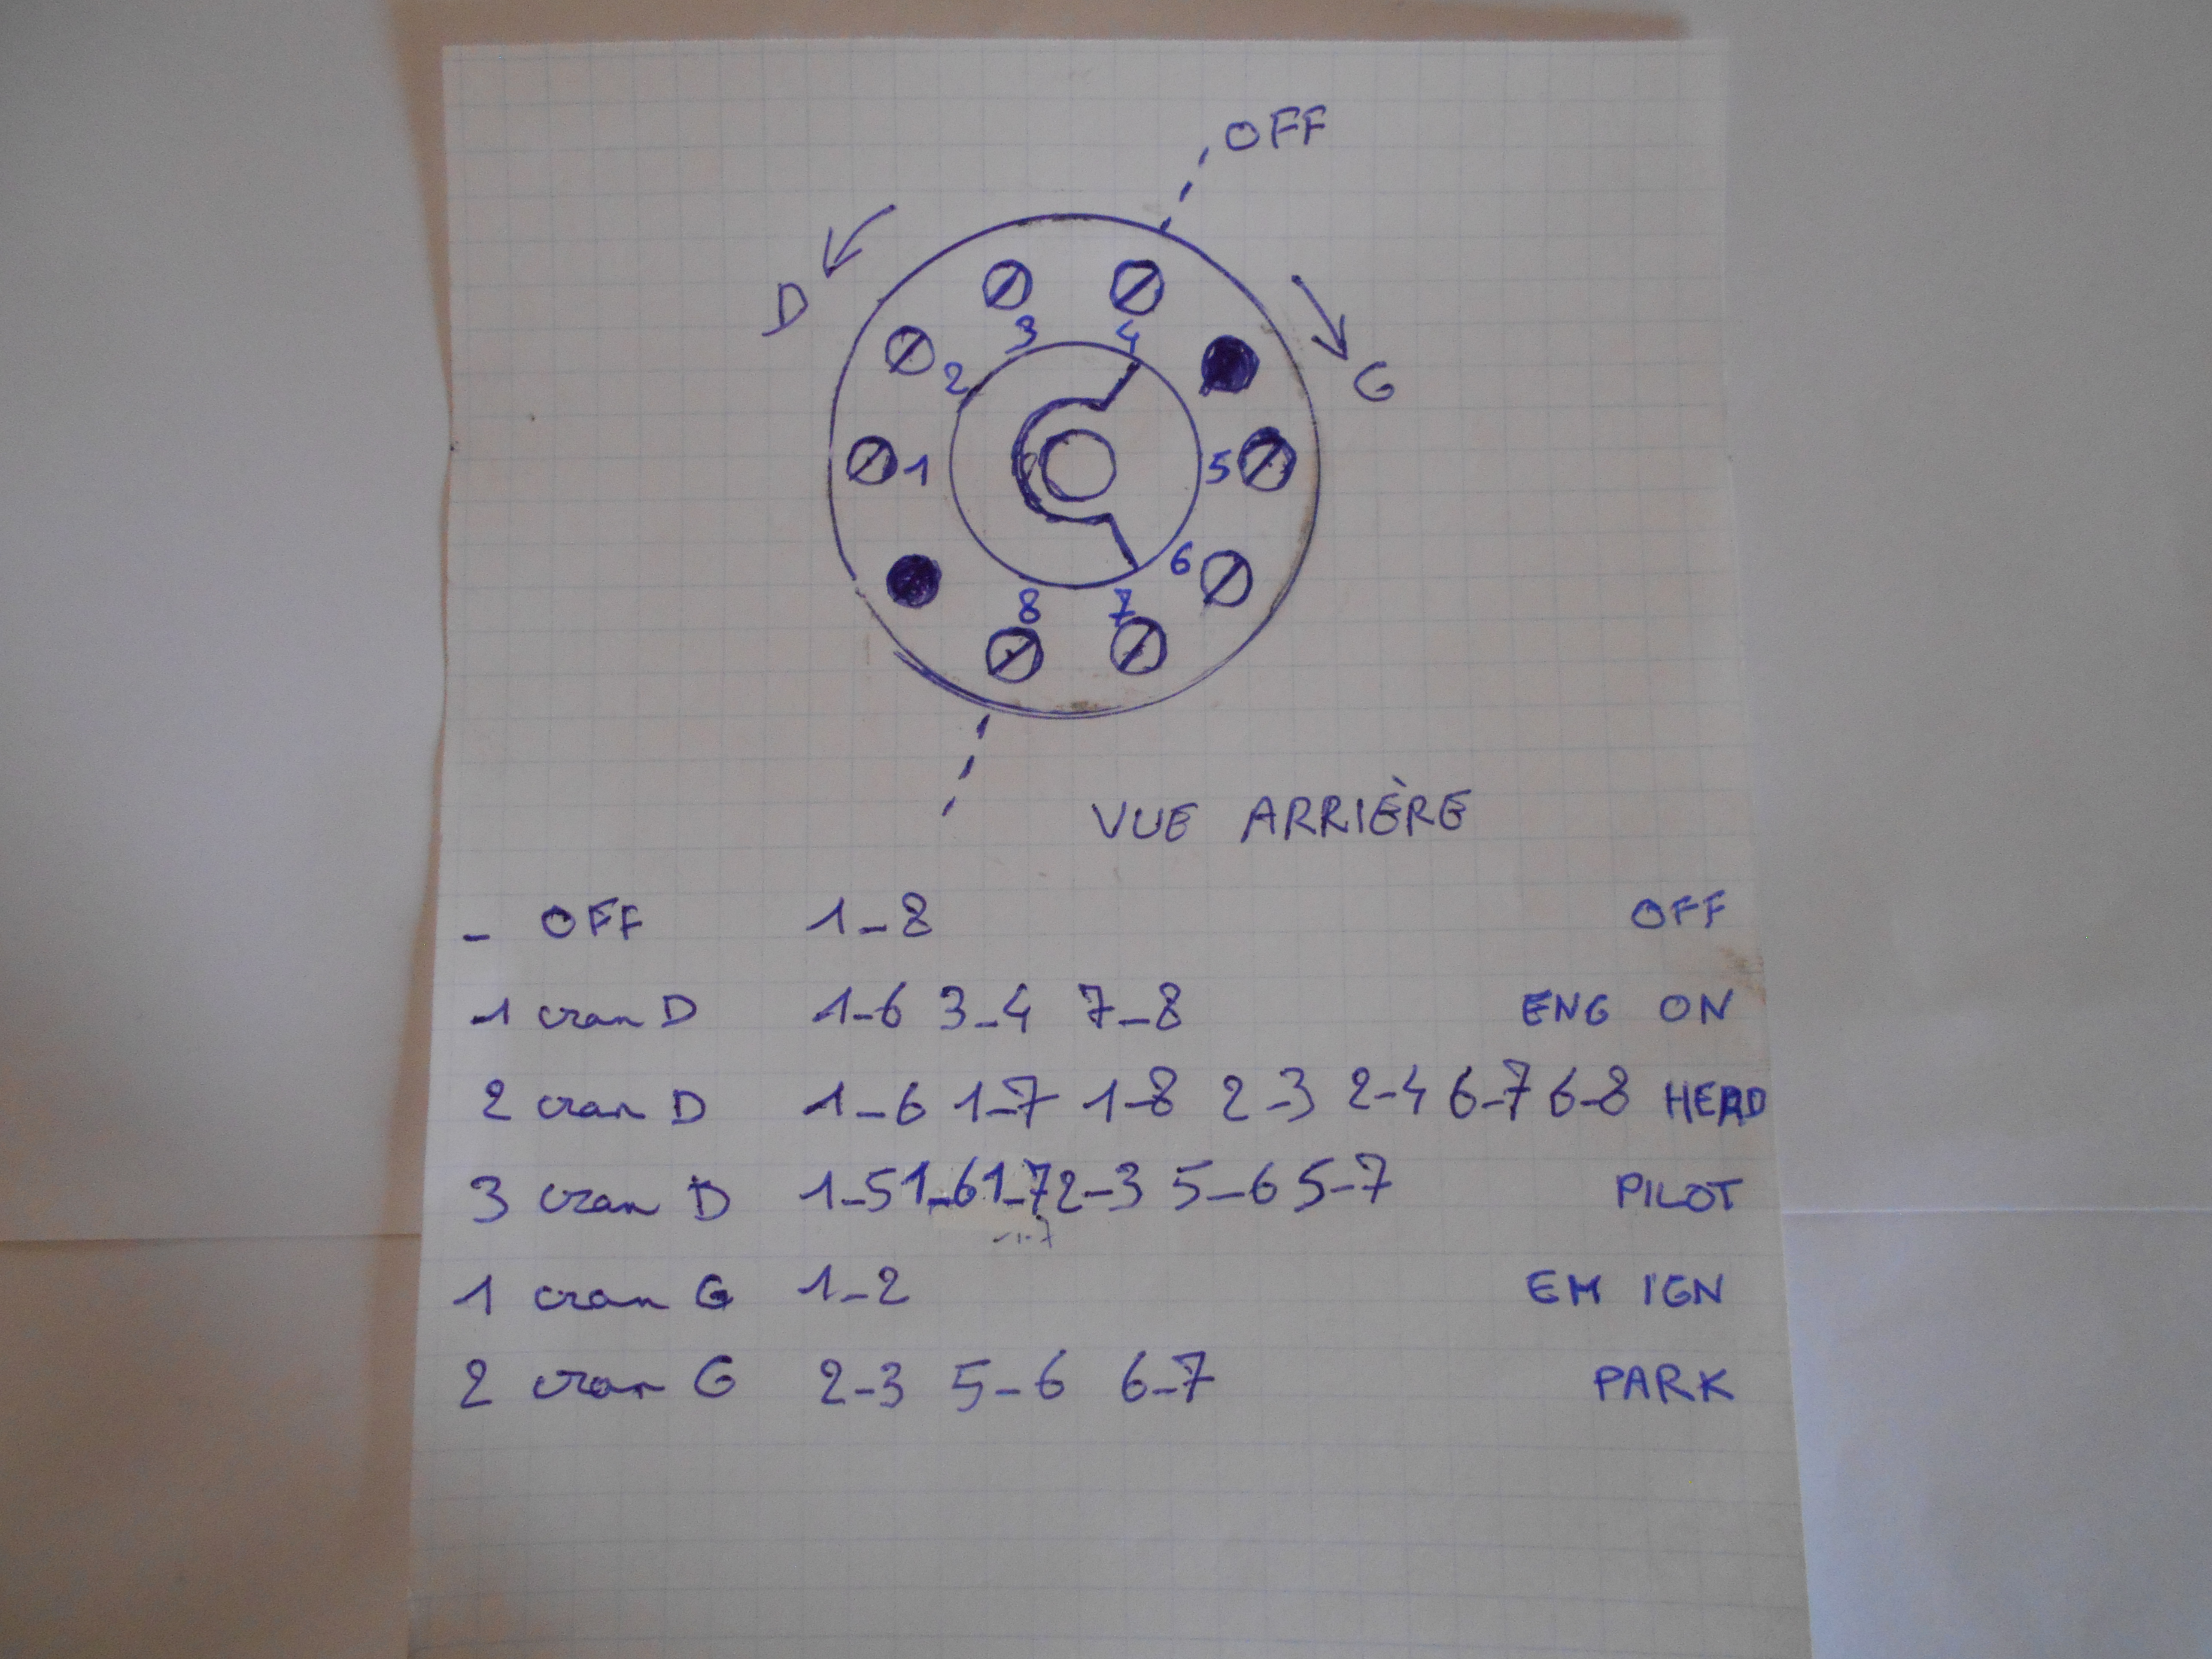 OFF
D
G
3 4
2
1 5
6
8 7
VUE ARRIÈRE
- OFF 1-8 OFF
-1 cran D 1-6 3-4 7-8 ENG ON
2 cran D 1-6 1-7 1-8 2-3 2-4 6-7 6-8 HEAD
3 cran D 1-5 1-6 1-7 2-3 5-6 5-7 PILOT
1 cran G 1-2 EM IGN
2 cran G 2-3 5-6 6-7 PARK